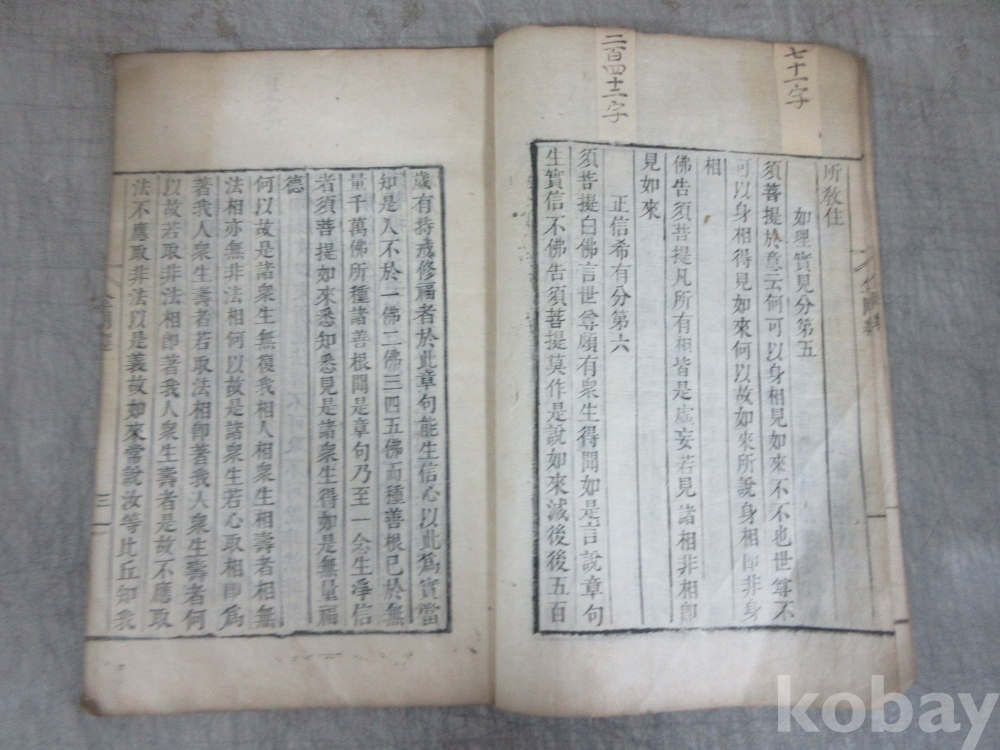 七十一字
二百四十二字
所敎住
如理實見分第五
須菩提於意云何可以身相見如來不不也世尊不
可以身相得見如來何以故如來所說身相即非身
相
佛告須菩提凡所有相皆是虛妄若見諸相非相即
見如來
正信希有分第六
須菩提白佛言世尊頗有衆生得聞如是言說章句
生實信不佛告須菩提莫作是說如來滅後後五百
歲有持戒修福者於此章句能生信心以此爲實當
知是人不於一佛二佛三四五佛而種善根已於無
量千萬佛所種諸善根聞是章句乃至一念生淨信
者須菩提如來悉知悉見是諸衆生得如是無量福
德
何以故是諸衆生無復我相人相衆生相壽者相無
法相亦無非法相何以故是諸衆生若心取相即爲
著我人衆生壽者若取法相即著我人衆生壽者何
以故若取非法相即著我人衆生壽者是故不應取
法不應取非法以是義故如來常說汝等比丘知我
三
kobay